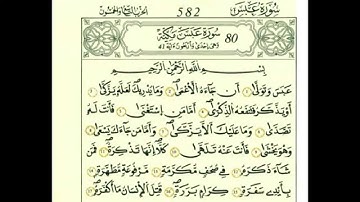 سُورَةُ عَبَسَ 582 الحزب التاسع والخمسون
سُورَةُ عَبَسَ مَكِّيَّة 80
وهي إحدى وأربعون آية 41
بِسْمِ اللَّهِ الرَّحْمَٰنِ الرَّحِيمِ
عَبَسَ وَتَوَلَّىٰ أَن جَاءَهُ الْأَعْمَىٰ وَمَا يُدْرِيكَ لَعَلَّهُ يَزَّكَّىٰ
أَوْ يَذَّكَّرُ فَتَنفَعُهُ الذِّكْرَىٰ أَمَّا مَنِ اسْتَغْنَىٰ فَأَنتَ لَهُ
تَصَّدَّىٰ وَمَا عَلَيْكَ أَلَّا يَزَّكَّىٰ وَأَمَّا مَن جَاءَكَ يَسْعَىٰ
وَهُوَ يَخْشَىٰ فَأَنتَ عَنْهُ تَلَهَّىٰ كَلَّا إِنَّهَا تَذْكِرَةٌ فَمَن
شَاءَ ذَكَرَهُ فِي صُحُفٍ مُّكَرَّمَةٍ مَّرْفُوعَةٍ مُّطَهَّرَةٍ
بِأَيْدِي سَفَرَةٍ كِرَامٍ بَرَرَةٍ قُتِلَ الْإِنسَانُ مَا أَكْفَرَهُ